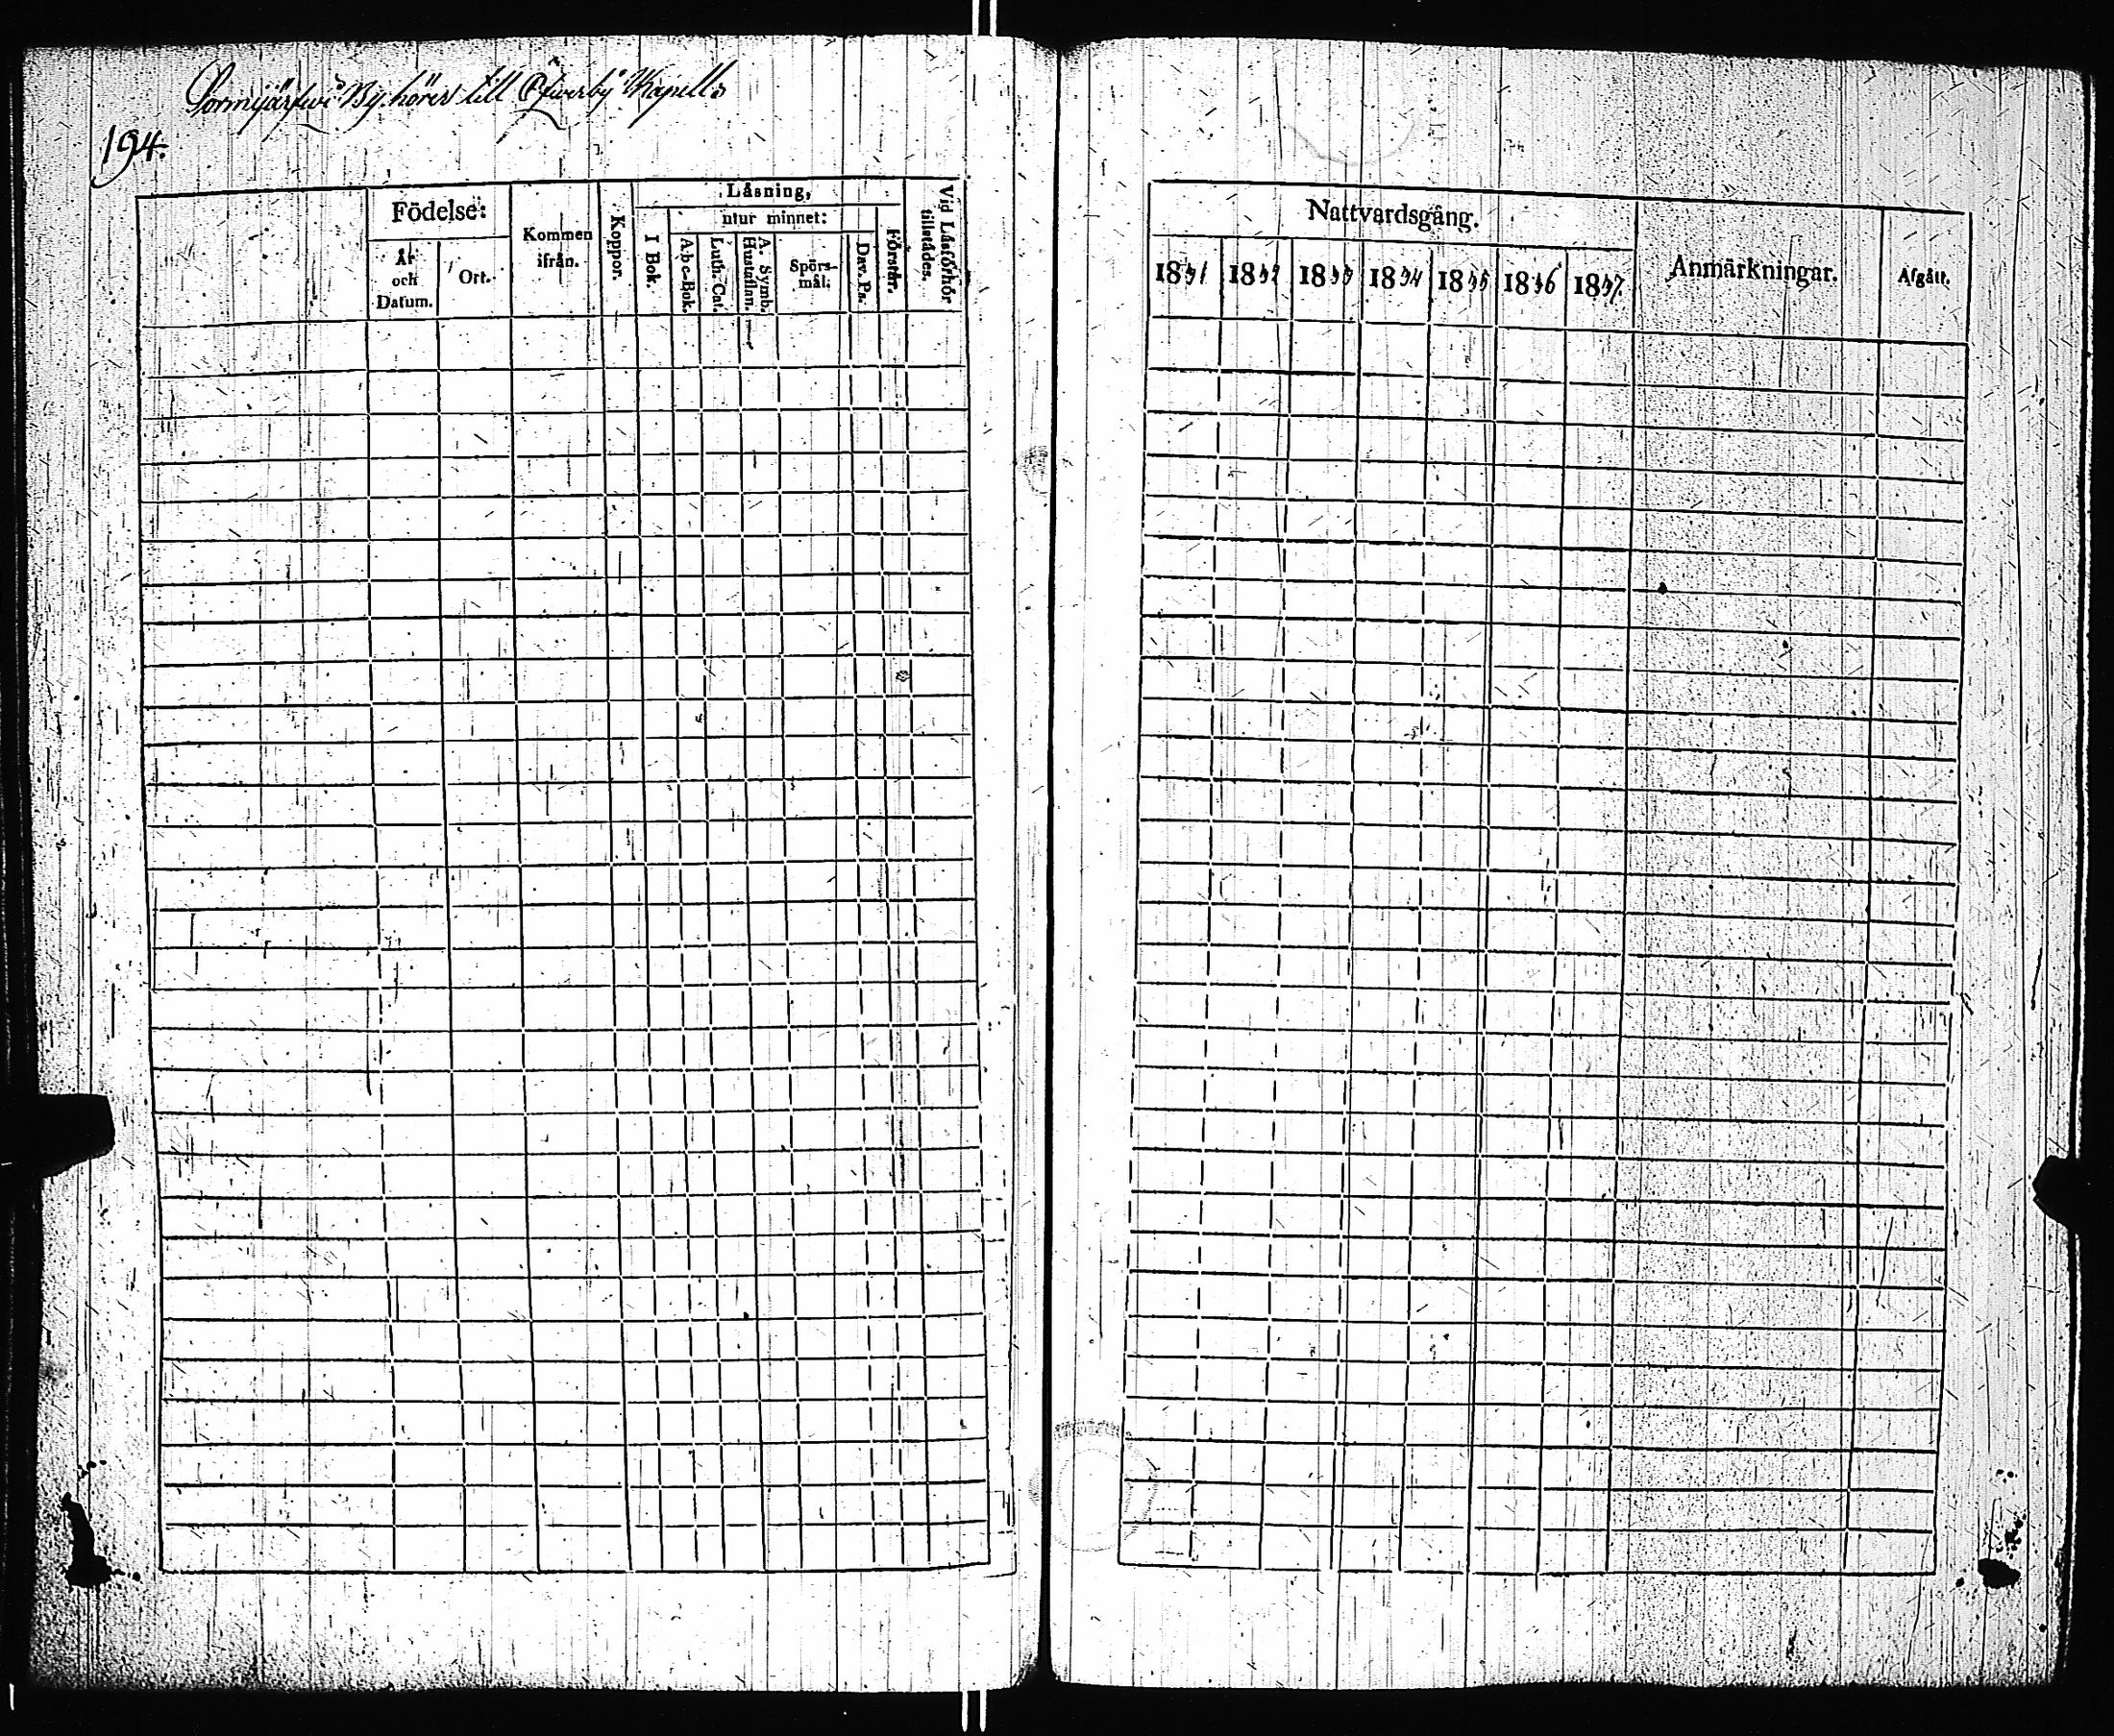 Sormijärfwi By hörer till Öfwerby Kapell.
194.
Födelse:
År och Datum.
Ort.
Kommen ifrån.
Koppor.
Läsning,
utur minnet:
I Bok.
A-b-c-Bok.
Luth. Cat.
A. Symb. Hustaflan.
Spörsmål.
Dav. Ps.
Förstår.
Vid Läsförhör tillstådes.
Nattvardsgång.
1831 1832 1833 1834 1835 1836 1837.
Anmärkningar.
Afgått.